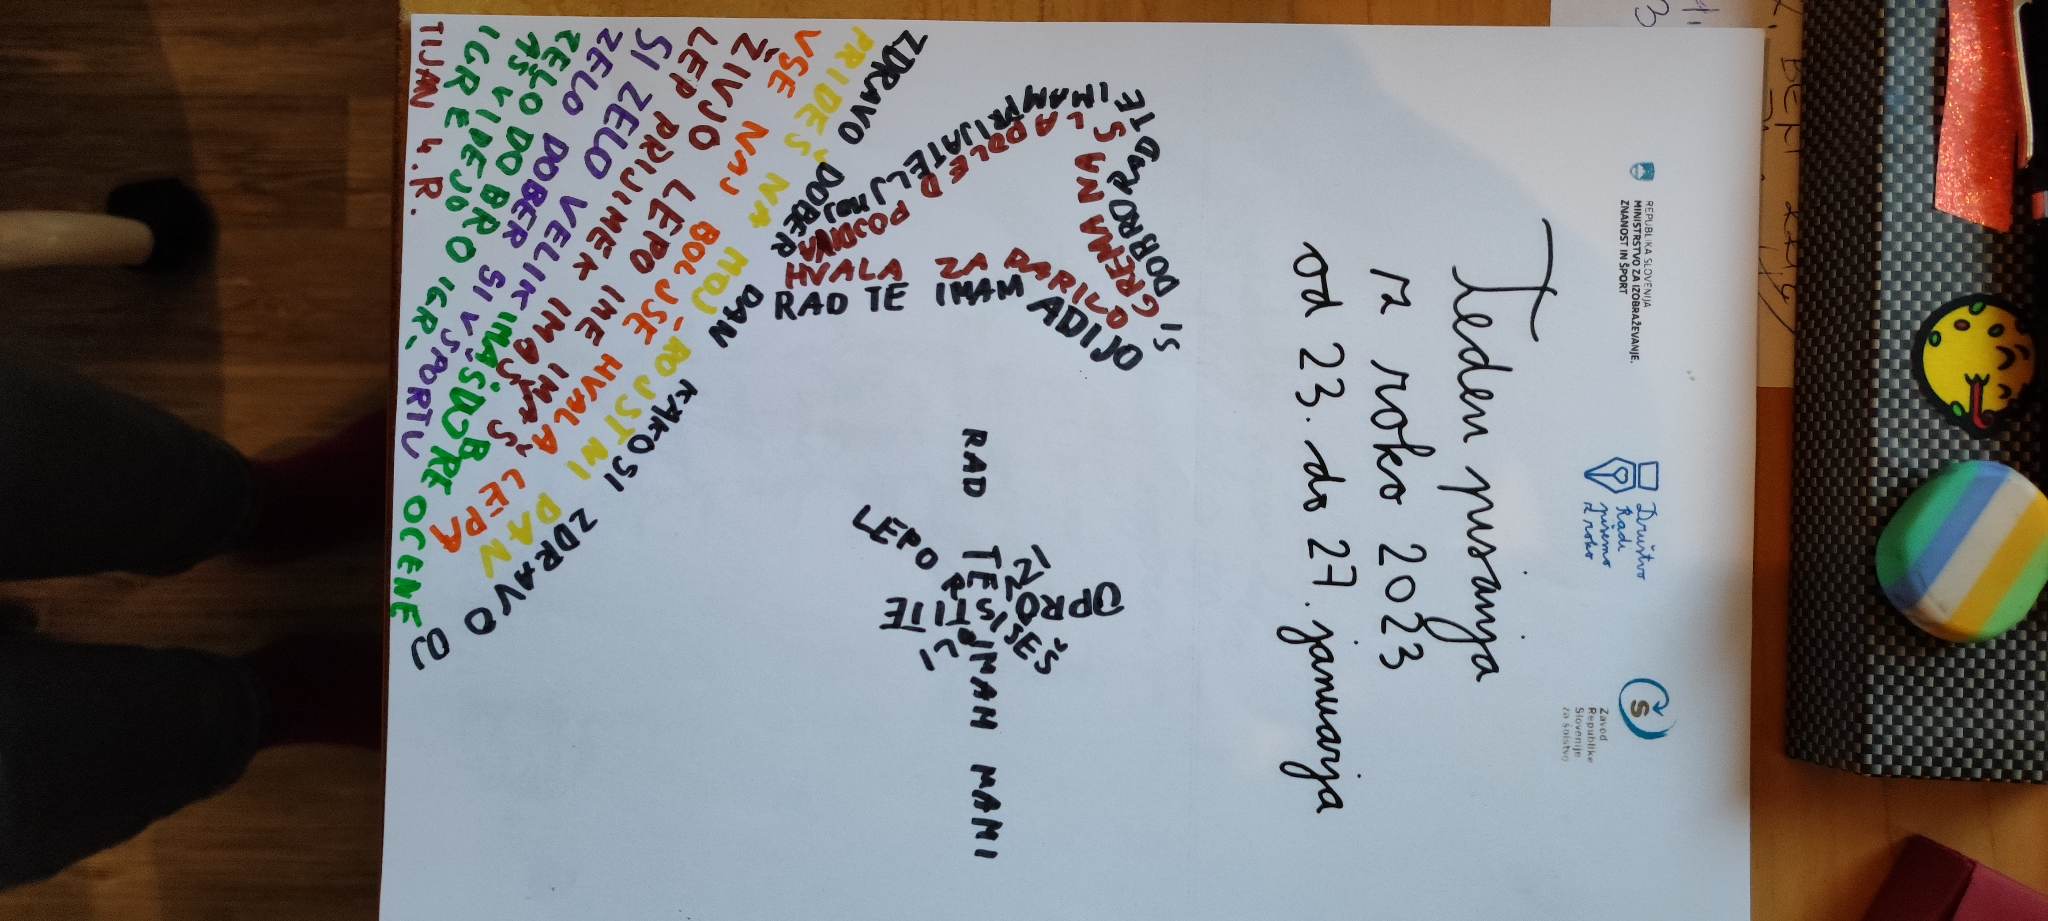 REPUBLIKA SLOVENIJA
MINISTRSTVO ZA IZOBRAŽEVANJE,
ZNANOST IN ŠPORT
Društvo
Radi
pišemo
z roko
Zavod
Republike
Slovenije
za šolstvo
Teden pisanja
z roko 2023
od 23. do 27. januarja
DOBRO
GREMA NA
IMAM PRIJATELJ moj
HVALA ZA DARILO
RAD TE IMAM ADIJO
RAD TE IMAM MAMI
LEPO
OPROSTITE
ZDRAVO DOBER DAN KAKO SI ZDRAVO
PRIDEŠ NA MOJ ROJSTNI DAN
VSE NAJ BOLJŠE HVALA LEPA
ŽIVJO LEPO IME IMAŠ
LEP PRIJIMEK IMAŠ
SI ZELO VELIK IMAŠ DOBRE OCENE
ZELO DOBER SI V ŠPORTU
ZELO DOBRO IGR.
IGRE
TIJAN 4. R.